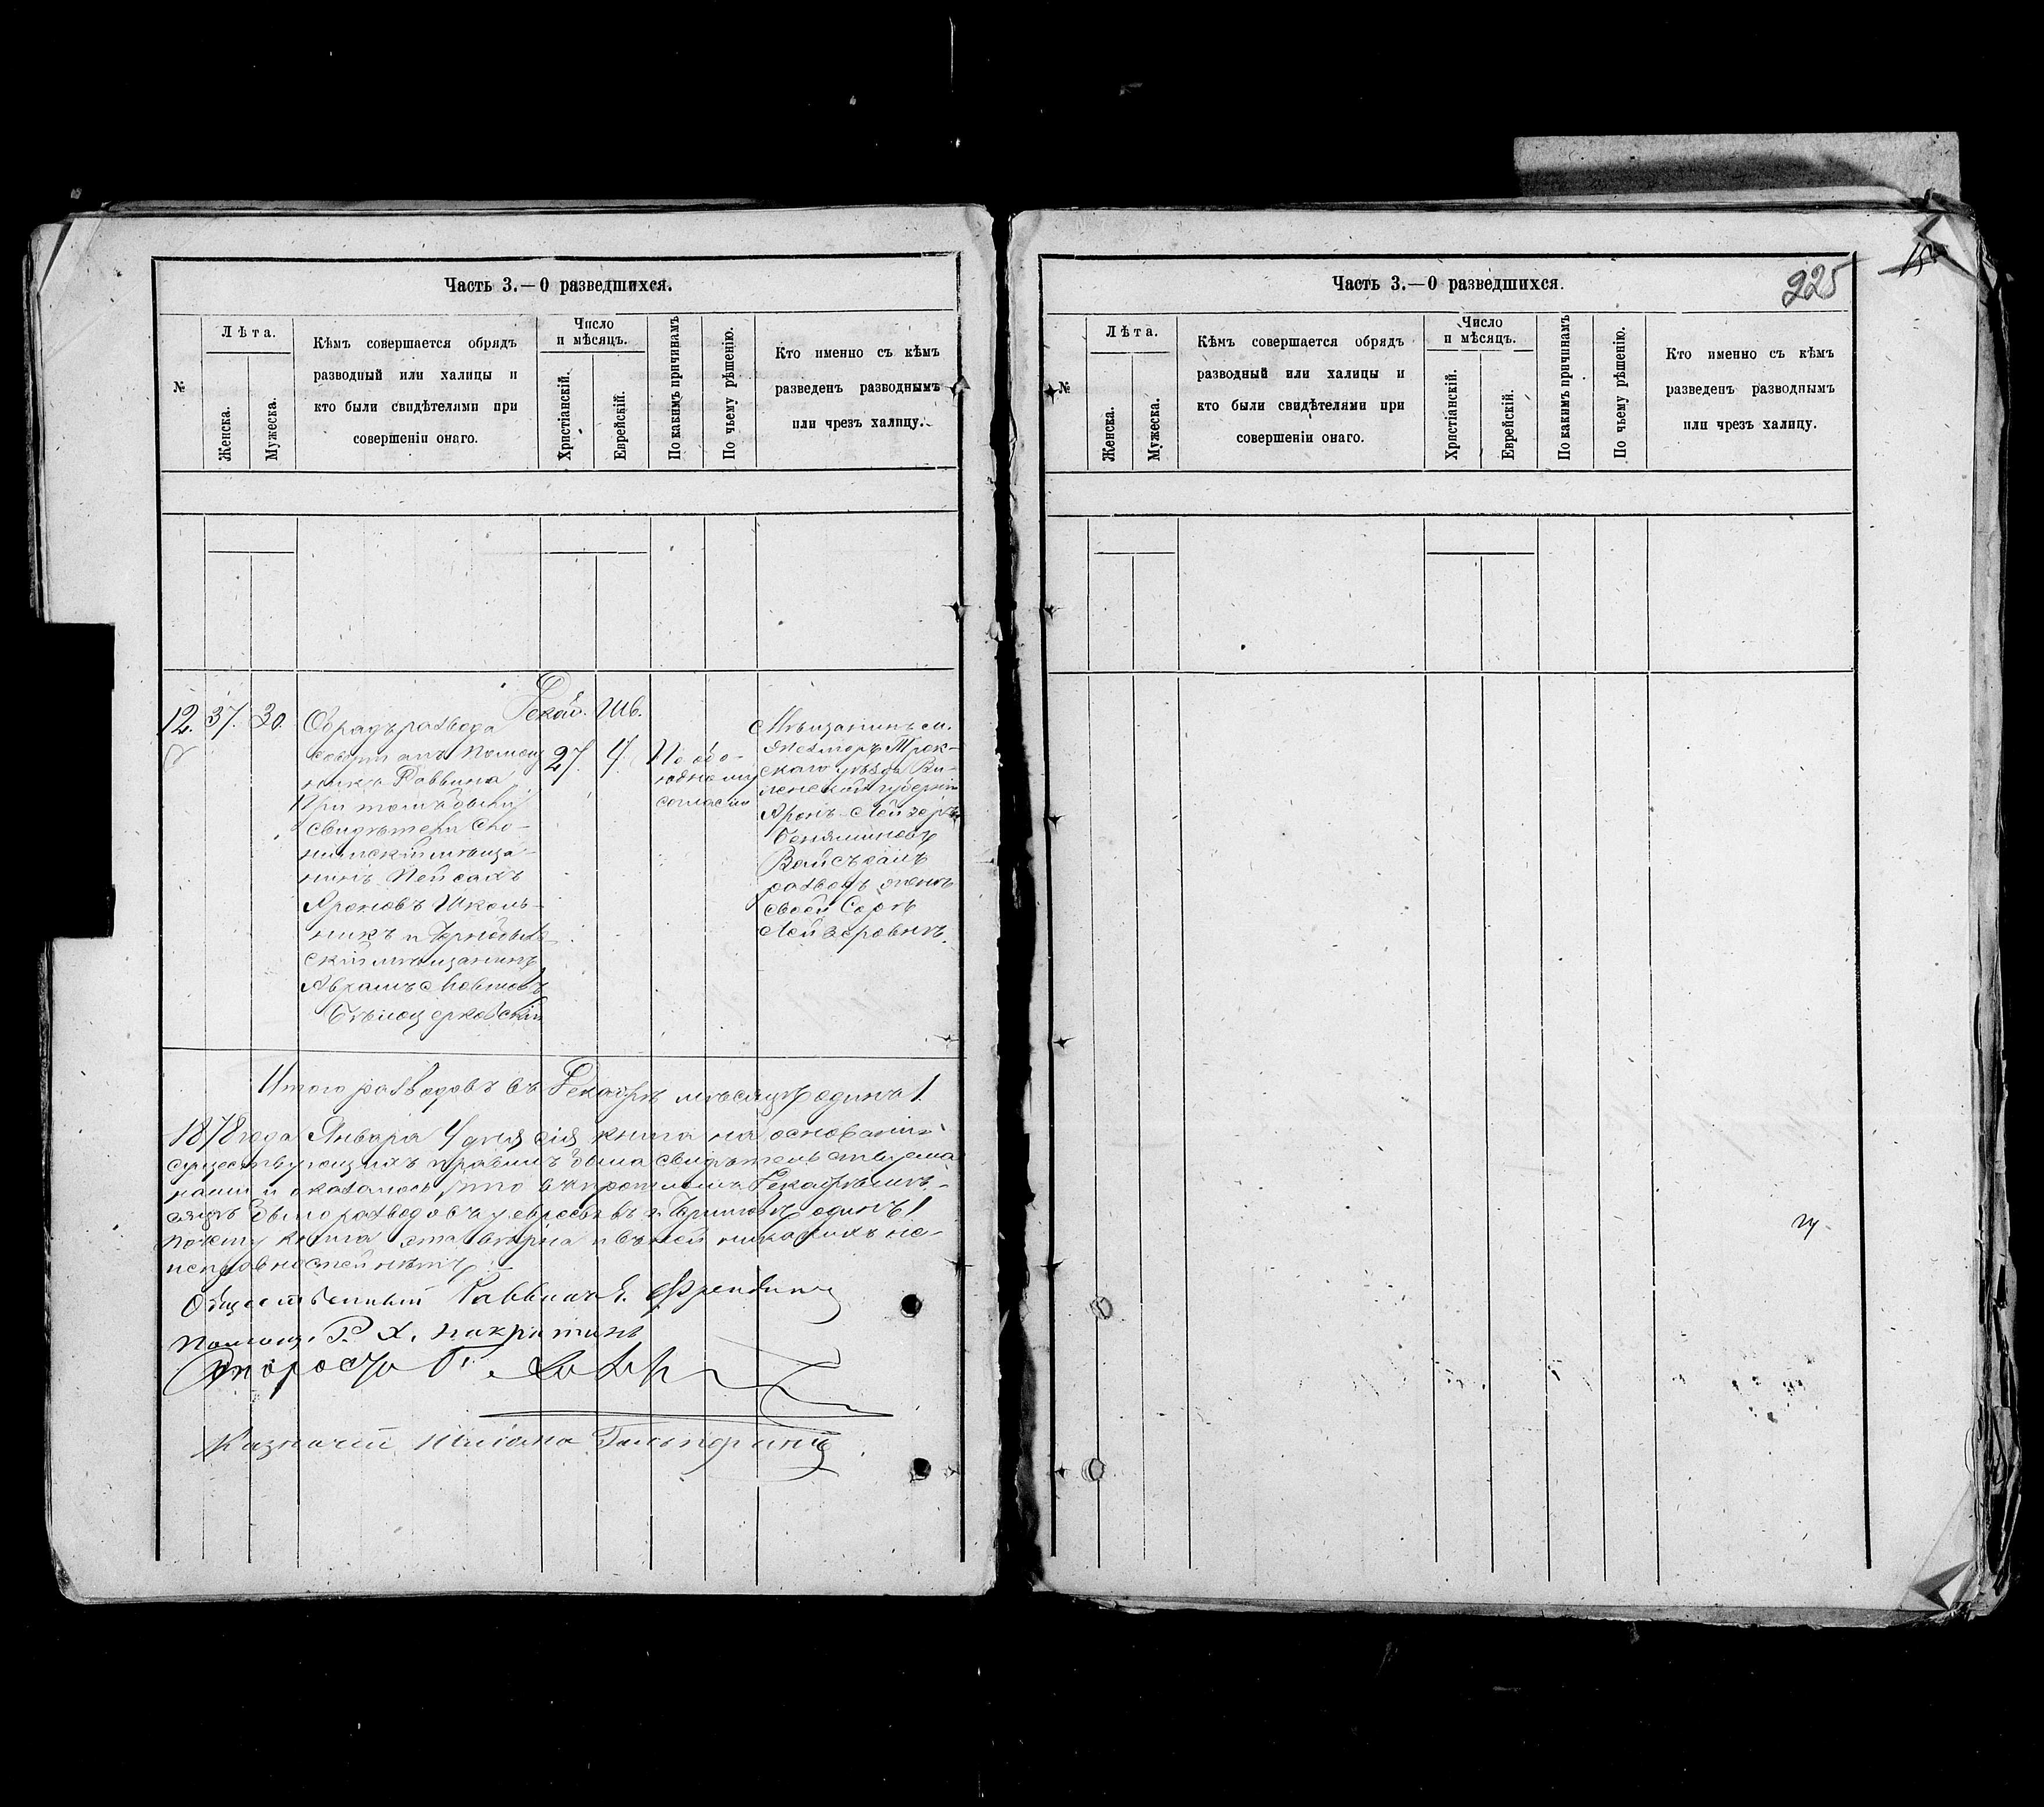 Часть 3.—О разведшихся.
№
Лѣта.
Женска.
Мужеска.
Кѣмъ совершается обрядъ
разводный или халицы и
кто были свидѣтелями при
совершеніи онаго.
Число
и мѣсяцъ.
Христіанскій.
Еврейскій.
По какимъ причинамъ
По чьему рѣшенію.
Кто именно съ кѣмъ
разведенъ разводнымъ
или чрезъ халицу.
12. 37. 30.
Обрядъ развода
совершалъ Помощ
никъ Раввина
При томъ были
свидѣтели Сло-
нимскій мѣща-
нинъ Пейсахъ
Ароновъ Школь-
никъ и
скій мѣщанинъ
Авраамъ
Бѣлоцерковскій
Декаб.
27.
Шв.
4.
По обо-
юдному
согласію
Мѣщанинъ м.
Жезморъ Трок-
скаго уѣзда Ви-
ленской губерніи
Аронъ-Лейзеръ
Беняминовъ
Вейсъ
разводъ женѣ
своей Сорѣ
Лейзеровнѣ.
Итого разводовъ въ Декабрѣ мѣсяцѣ одинъ 1
1878 года Января 4 дня сія книга на основаніи
существующихъ правилъ была свидѣтельствуема
нами и оказалось что въ прошломъ Декабрѣ мѣ-
сяцѣ было разводовъ у евреевъ въ г. одинъ 1
почему книга эта вѣрна и въ ней никакихъ не-
исправностей нѣтъ.
Общественный Раввинъ
Помощ. Р. Х.
Староста
Казначей Гальперинъ
Часть 3.—О разведшихся.
225
15
№
Лѣта.
Женска.
Мужеска.
Кѣмъ совершается обрядъ
разводный или халицы и
кто были свидѣтелями при
совершеніи онаго.
Число
и мѣсяцъ.
Христіанскій.
Еврейскій.
По какимъ причинамъ
По чьему рѣшенію.
Кто именно съ кѣмъ
разведенъ разводнымъ
или чрезъ халицу.